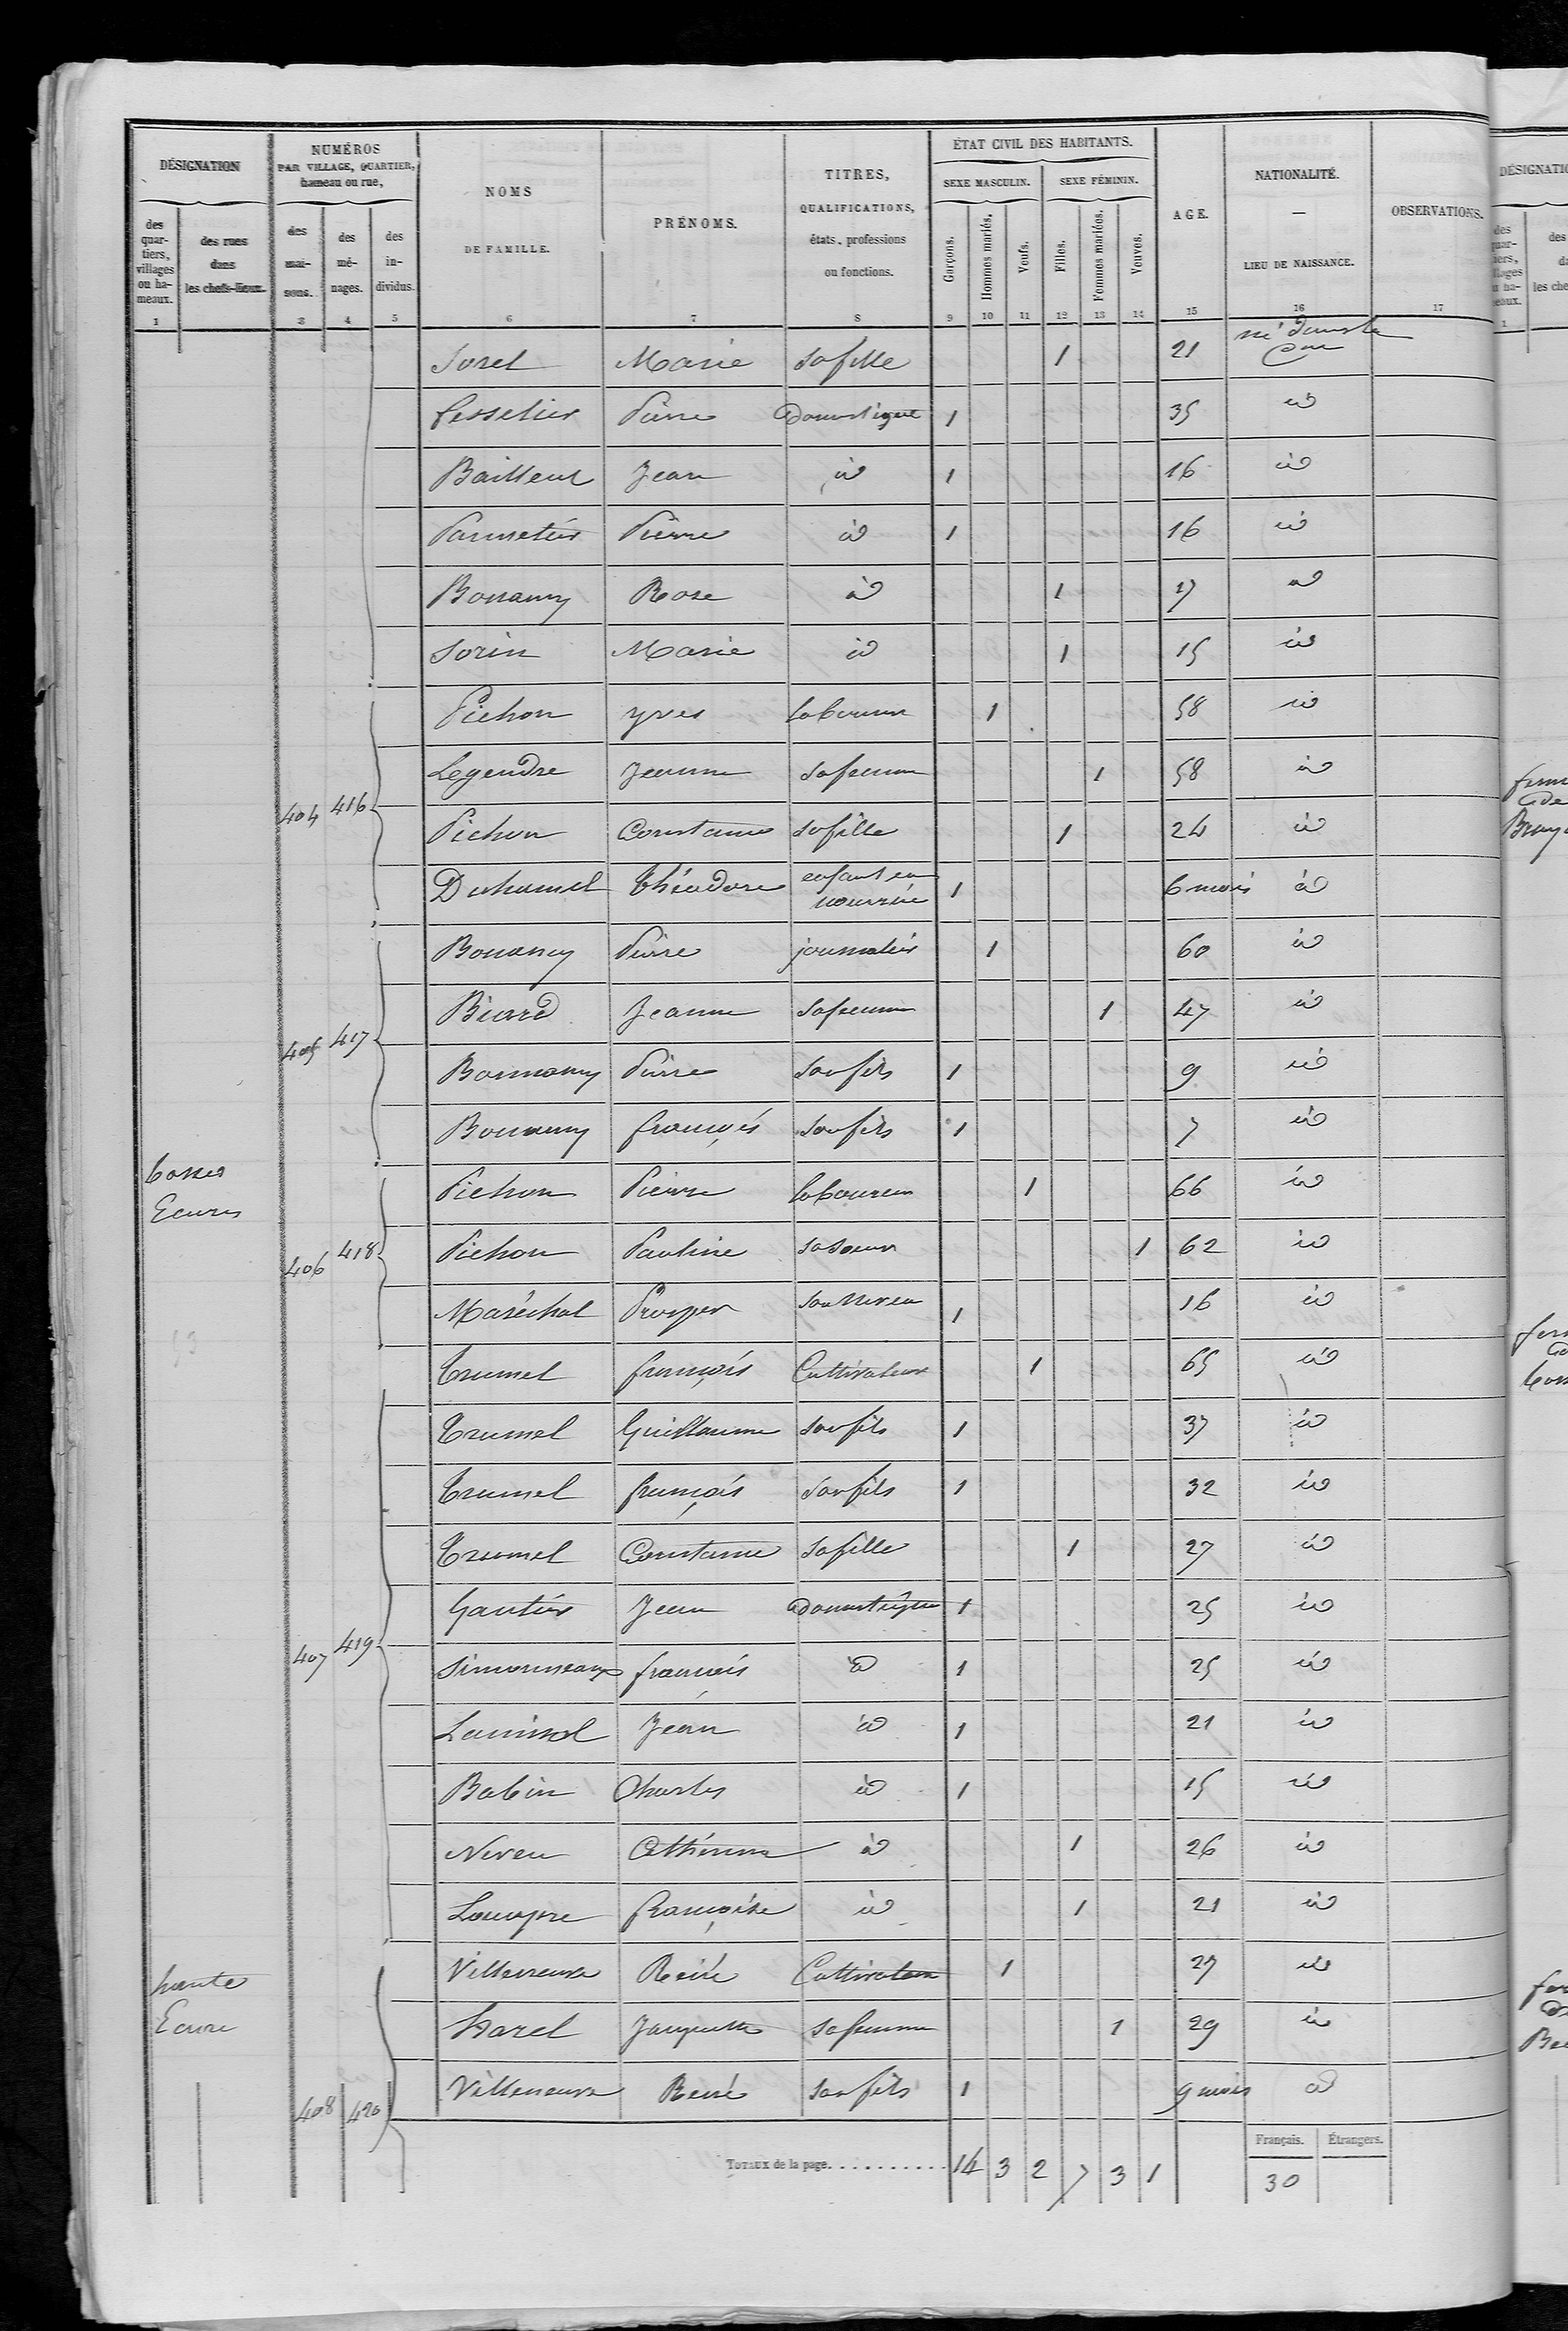 DÉSIGNATION
NUMÉROS
PAR VILLAGE, QUARTIER,
hameau ou rue,
NOMS
DE FAMILLE.
PRÉNOMS.
TITRES,
QUALIFICATIONS,
états, professions
ou fonctions.
ÉTAT CIVIL DES HABITANTS.
SEXE MASCULIN. SEXE FÉMININ.
AGE.
NATIONALITÉ.
—
LIEU DE NAISSANCE.
OBSERVATIONS.
des quar-tiers, villages ou ha-meaux.
des rues dans les chefs-lieux.
des mai-sons.
des mé-nages.
des in-dividus.
Garçons. Hommes mariés. Veufs. Filles. Femmes mariées. Veuves.
1 3 4 5 6 7 8 9 10 11 12 13 14 15 16 17
Sorel Marie sa fille 1 21 né dans la
Pierre Domestique 1 35 id
Bailleul Jean id 1 16 id
Parmetier Pierre id 1 16 id
Bonamy Rose id 1 17 id
Sorin Marie id 1 15 id
Pichon yves laboureur 1 58 id
Legendre Jeanne sa femme 1 58 id
404 416 Pichon Constance sa fille 1 24 id
Duhamel théodore enfant en nourrice 1 6 mois id
Bonamy Pierre journalier 1 60 id
Biard Jeanne sa femme 1 47 id
405 417 Bonnamy Pierre son fils 1 9 id
Bonamy françois son fils 1 7 id
basses
Ecures
Pichon Pierre laboureur 1 66 id
406 418 Pichon Pauline sa soeur 1 62 id
Maréchal Prosper son Neveu 1 16 id
Trumel françois Cultivateur 1 65 id
Trumel Guillaume son fils 1 37 id
Trumel françois son fils 1 32 id
Trumel Constance sa fille 1 27 id
Gautier Jean domestique 1 25 id
407 419 Simonneaux francois id 1 25 id
Jean id 1 21 id
Babin Charles id 1 15 id
Neveu Cathérine id 1 26 id
françoise id 1 21 id
haute
Ecure
Villeneuve René Cultivateur 1 27 id
Harel Jacquette sa femme 1 29 id
408 420 Villeneuve René son fils 1 9 mois id
Français. Étrangers.
TOTAUX de la page. . . . . . . . . . . 14 3 2 7 3 1 30